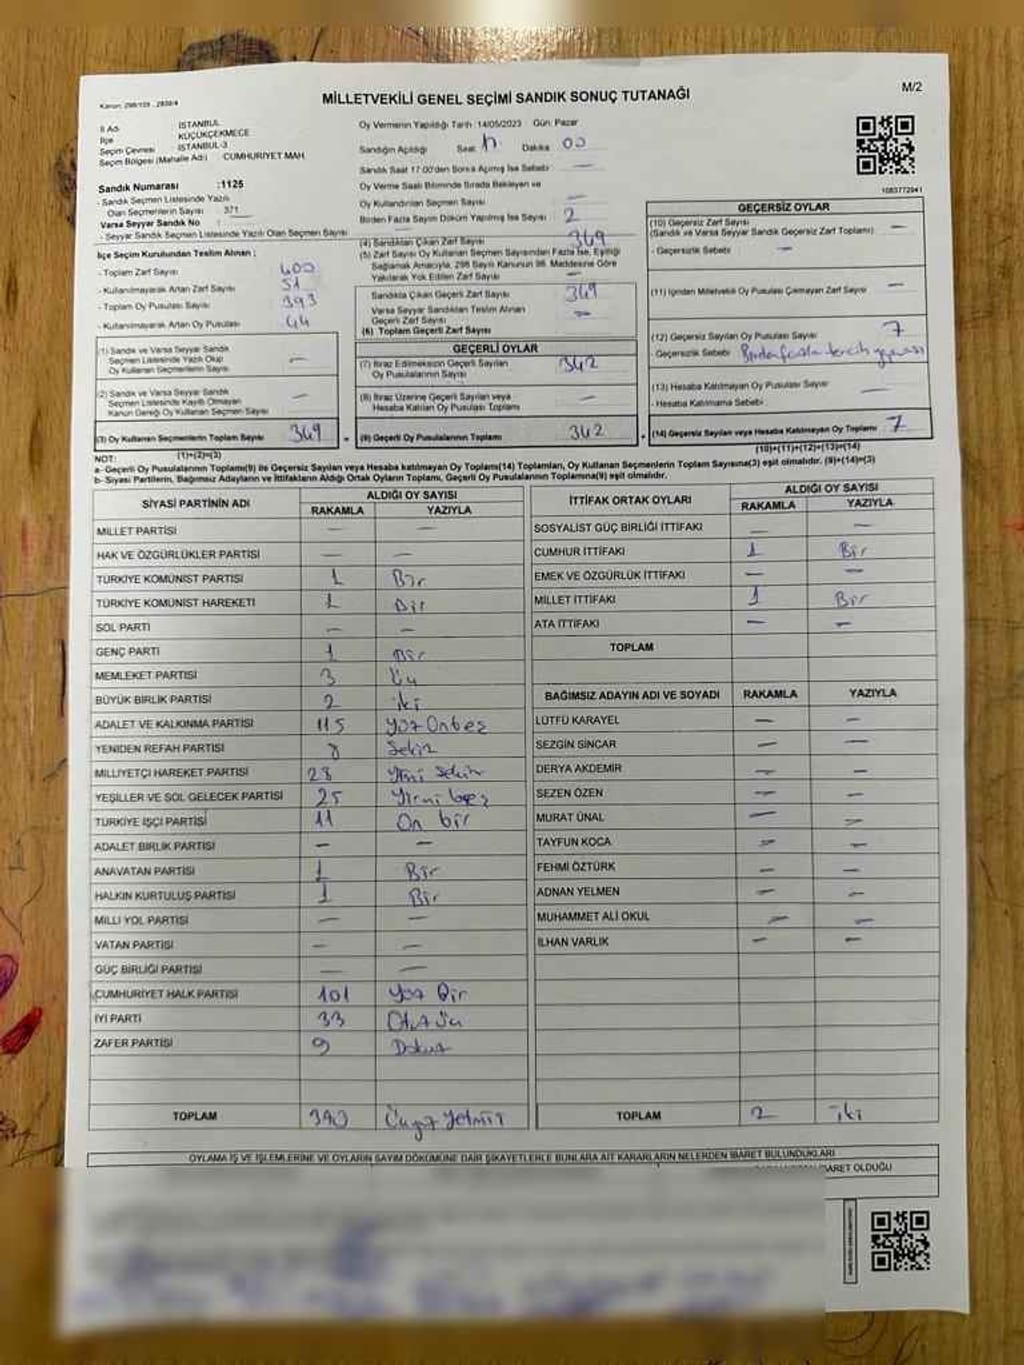 Kanun: 298/105 , 2839/4
MİLLETVEKİLİ GENEL SEÇİMİ SANDIK SONUÇ TUTANAĞI
M/2
İl Adı : İSTANBUL
İlçe : KÜÇÜKÇEKMECE
Seçim Çevresi : İSTANBUL-3
Seçim Bölgesi (Mahalle Adı) : CUMHURİYET MAH.
Sandık Numarası :1125
- Sandık Seçmen Listesinde Yazılı
Olan Seçmenlerin Sayısı : 371
Varsa Seyyar Sandık No :
- Seyyar Sandık Seçmen Listesinde Yazılı Olan Seçmen Sayısı
İlçe Seçim Kurulundan Teslim Alınan ;
- Toplam Zarf Sayısı : 400
- Kullanılmayarak Artan Zarf Sayısı : 51
- Toplam Oy Pusulası Sayısı : 393
- Kullanılmayarak Artan Oy Pusulası : 44
(1) Sandık ve Varsa Seyyar Sandık
Seçmen Listesinde Yazılı Olup
Oy Kullanan Seçmenlerin Sayısı —
(2) Sandık ve Varsa Seyyar Sandık
Seçmen Listesinde Kayıtlı Olmayan
Kanun Gereği Oy Kullanan Seçmen Sayısı —
(3) Oy Kullanan Seçmenlerin Toplam Sayısı 349
(1)+(2)=(3)
Oy Vermenin Yapıldığı Tarih :14/05/2023 Gün: Pazar
Sandığın Açıldığı Saat Dakika 00
Sandık Saat 17:00'den Sonra Açılmış İse Sebebi : —
Oy Verme Saati Bitiminde Sırada Bekleyen ve
Oy Kullandırılan Seçmen Sayısı —
Birden Fazla Sayım Döküm Yapılmış İse Sayısı : 2
(4) Sandıktan Çıkan Zarf Sayısı 349
(5) Zarf Sayısı Oy Kullanan Seçmen Sayısından Fazla İse, Eşitliği
Sağlamak Amacıyla, 298 Sayılı Kanunun 98. Maddesine Göre
Yakılarak Yok Edilen Zarf Sayısı —
Sandıkta Çıkan Geçerli Zarf Sayısı 349
Varsa Seyyar Sandıktan Teslim Alınan
Geçerli Zarf Sayısı —
(6) Toplam Geçerli Zarf Sayısı
GEÇERLİ OYLAR
(7) İtiraz Edilmeksizin Geçerli Sayılan
Oy Pusulalarının Sayısı 342
(8) İtiraz Üzerine Geçerli Sayılan veya
Hesaba Katılan Oy Pusulası Toplamı —
(9) Geçerli Oy Pusulalarının Toplamı 342
1083772941
GEÇERSİZ OYLAR
(10) Geçersiz Zarf Sayısı
(Sandık ve Varsa Seyyar Sandık Geçersiz Zarf Toplamı) —
- Geçersizlik Sebebi : —
(11) İçinden Milletvekili Oy Pusulası Çıkmayan Zarf Sayısı —
(12) Geçersiz Sayılan Oy Pusulası Sayısı 7
- Geçersizlik Sebebi Birden fazla tercih yapılması
(13) Hesaba Katılmayan Oy Pusulası Sayısı —
- Hesaba Katılmama Sebebi :
(14) Geçersiz Sayılan veya Hesaba Katılmayan Oy Toplamı 7
(10)+(11)+(12)+(13)=(14)
NOT:
a- Geçerli Oy Pusulalarının Toplamı(9) ile Geçersiz Sayılan veya Hesaba katılmayan Oy Toplamı(14) Toplamları, Oy Kullanan Seçmenlerin Toplam Sayısına(3) eşit olmalıdır. (9)+(14)=(3)
b- Siyasi Partilerin, Bağımsız Adayların ve İttifakların Aldığı Ortak Oyların Toplamı, Geçerli Oy Pusulalarının Toplamına(9) eşit olmalıdır.
SİYASİ PARTİNİN ADI ALDIĞI OY SAYISI
RAKAMLA YAZIYLA
MİLLET PARTİSİ — —
HAK VE ÖZGÜRLÜKLER PARTİSİ — —
TÜRKİYE KOMÜNİST PARTİSİ 1 Bir
TÜRKİYE KOMÜNİST HAREKETİ 1 Bir
SOL PARTİ — —
GENÇ PARTİ 1 Bir
MEMLEKET PARTİSİ 3 Üç
BÜYÜK BİRLİK PARTİSİ 2 iki
ADALET VE KALKINMA PARTİSİ 115 Yüz Onbeş
YENİDEN REFAH PARTİSİ 8 Sekiz
MİLLİYETÇİ HAREKET PARTİSİ 28 Yirmi Sekiz
YEŞİLLER VE SOL GELECEK PARTİSİ 25 Yirmi beş
TÜRKİYE İŞÇİ PARTİSİ 11 On bir
ADALET BİRLİK PARTİSİ — —
ANAVATAN PARTİSİ 1 Bir
HALKIN KURTULUŞ PARTİSİ 1 Bir
MİLLİ YOL PARTİSİ — —
VATAN PARTİSİ — —
GÜÇ BİRLİĞİ PARTİSİ — —
CUMHURİYET HALK PARTİSİ 101 Yüz Bir
İYİ PARTİ 33 Otuz Üç
ZAFER PARTİSİ 9 Dokuz
TOPLAM 340
İTTİFAK ORTAK OYLARI ALDIĞI OY SAYISI
RAKAMLA YAZIYLA
SOSYALİST GÜÇ BİRLİĞİ İTTİFAKI — —
CUMHUR İTTİFAKI 1 Bir
EMEK VE ÖZGÜRLÜK İTTİFAKI — —
MİLLET İTTİFAKI 1 Bir
ATA İTTİFAKI — —
TOPLAM
BAĞIMSIZ ADAYIN ADI VE SOYADI RAKAMLA YAZIYLA
LÜTFÜ KARAYEL — —
SEZGİN SİNCAR — —
DERYA AKDEMİR — —
SEZEN ÖZEN — —
MURAT ÜNAL — —
TAYFUN KOCA — —
FEHMİ ÖZTÜRK — —
ADNAN YELMEN — —
MUHAMMET ALİ OKUL — —
İLHAN VARLIK — —
TOPLAM 2 iki
OYLAMA İŞ VE İŞLEMLERİNE VE OYLARIN SAYIM DÖKÜMÜNE DAİR ŞİKAYETLERLE BUNLARA AİT KARARLARIN NELERDEN İBARET BULUNDUKLARI
BARET OLDUĞU